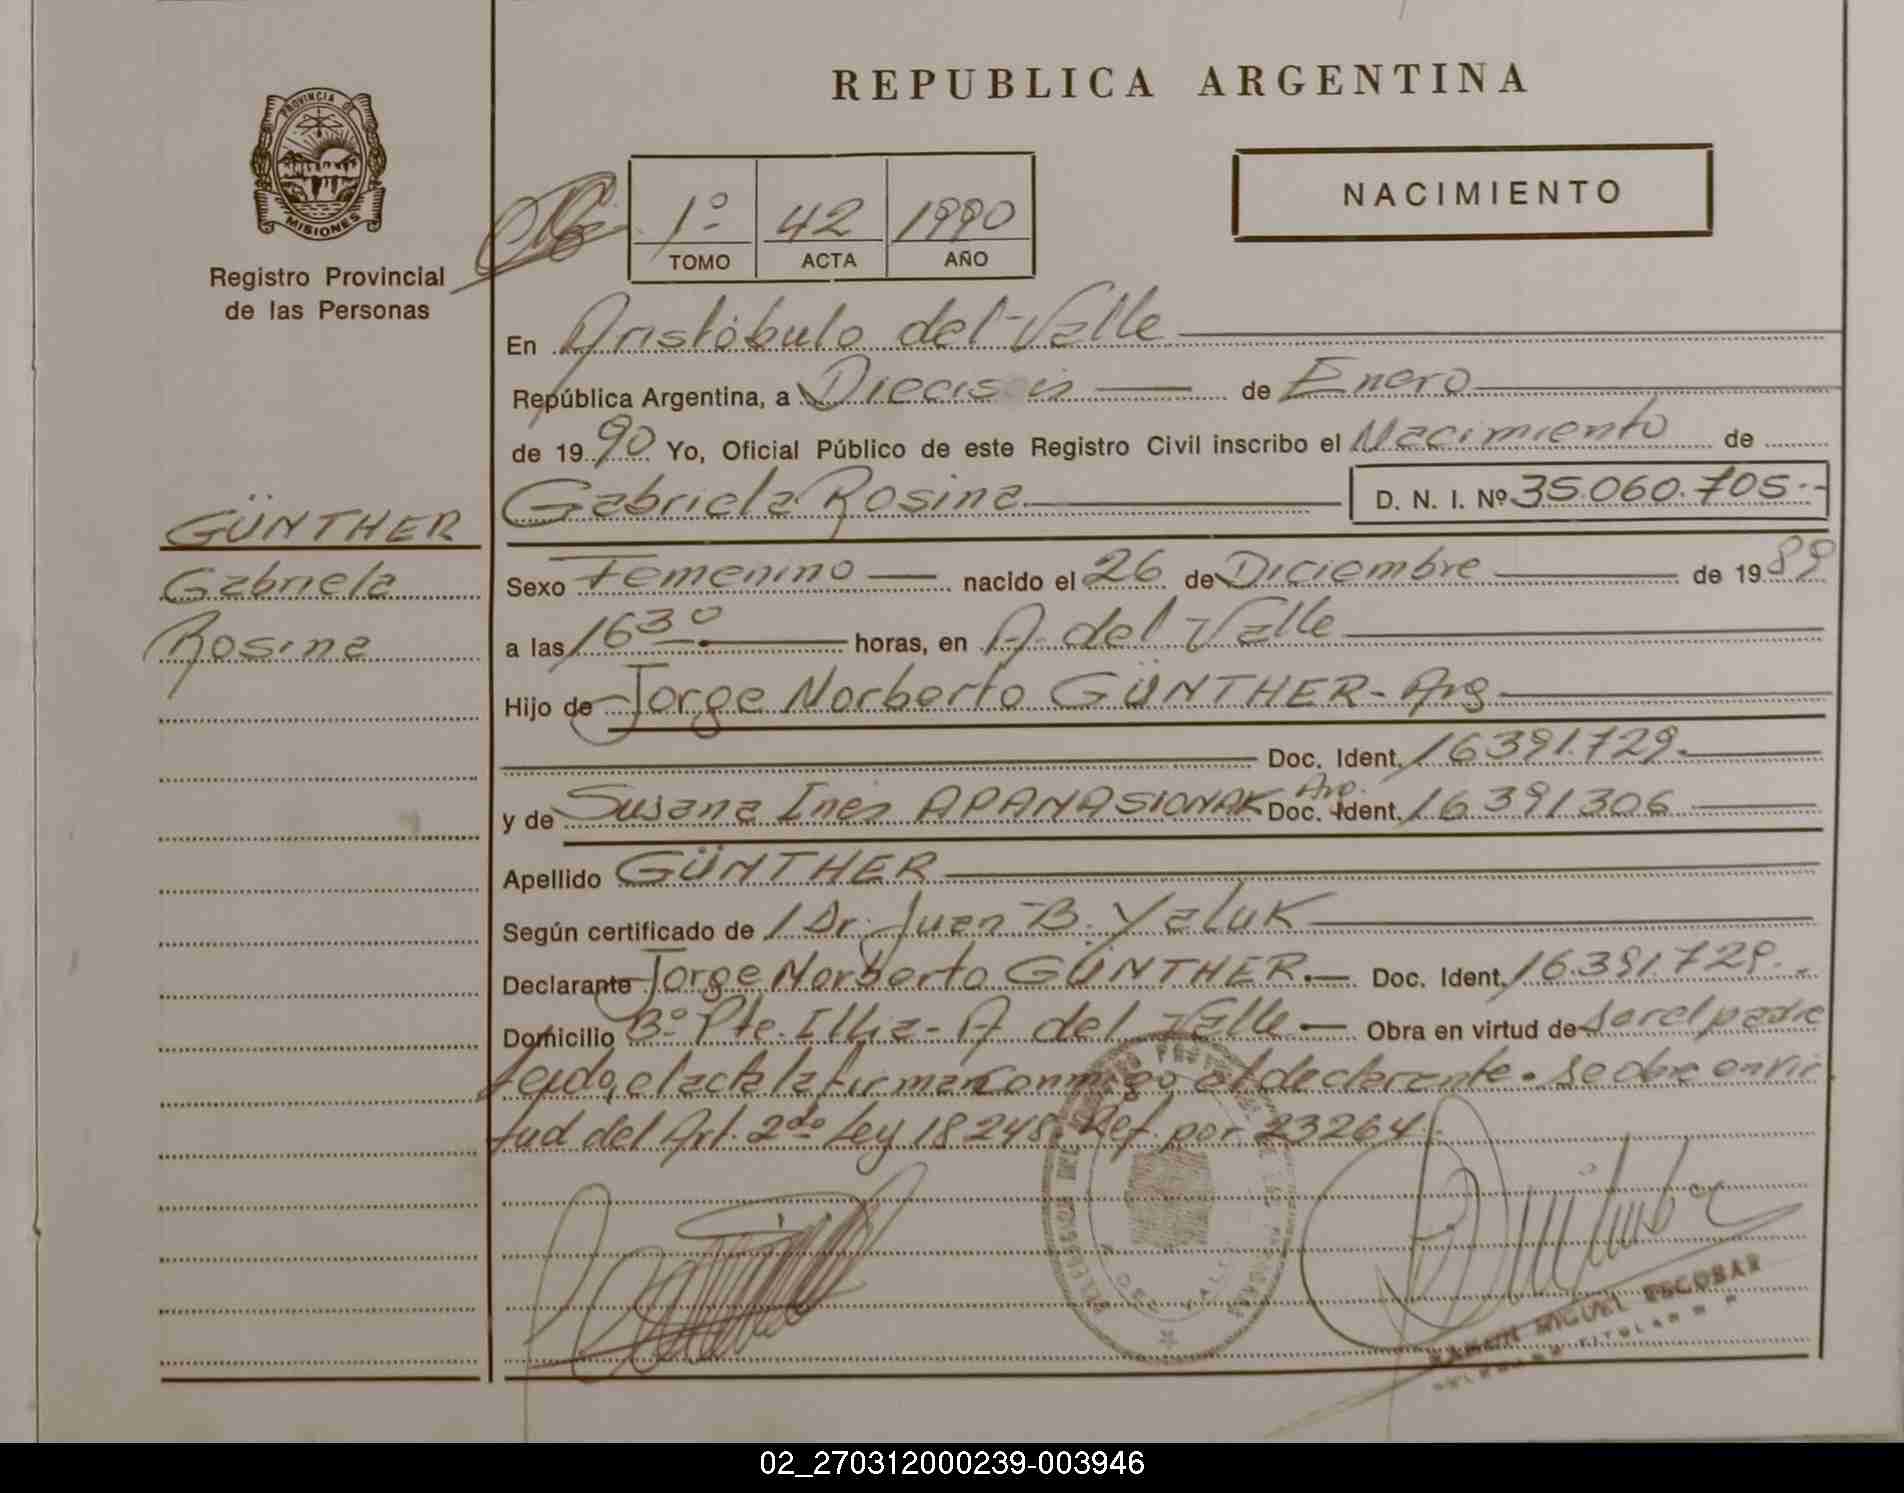 REPUBLICA ARGENTINA
PROVINCIA DE
MISIONES
Registro Provincial
de las Personas
NACIMIENTO
1º 42 1990
TOMO ACTA AÑO
En Aristóbulo del Valle
República Argentina, a Dieciseis de Enero
de 1990 Yo, Oficial Público de este Registro Civil inscribo el Nacimiento de
Gabriela Rosina D. N. I. Nº 35.060.705.-
GÜNTHER
Gabriela
Rosina
Sexo Femenino nacido el 26 de Diciembre de 1989
a las 1630 horas, en A. del Valle
Hijo de Jorge Norberto GÜNTHER - Arg
Doc. Ident. 16391.729.
y de Susana Ines APANASIONAK Arg. Doc. Ident. 16391306
Apellido GÜNTHER
Según certificado de / Dr. Juan B. Yaluk
Declarante Jorge Norberto GÜNTHER. Doc. Ident. 16.391.729.
Domicilio Bº Pte. Illia - A del Valle Obra en virtud de ser el padre
Leida el acta la firman conmigo el declarante. Se obra en vir
tud del Art. 2do Ley 18248. Ref. por 23264.
RAMON MIGUEL ESCOBAR
TITULAR
02_270312000239-003946